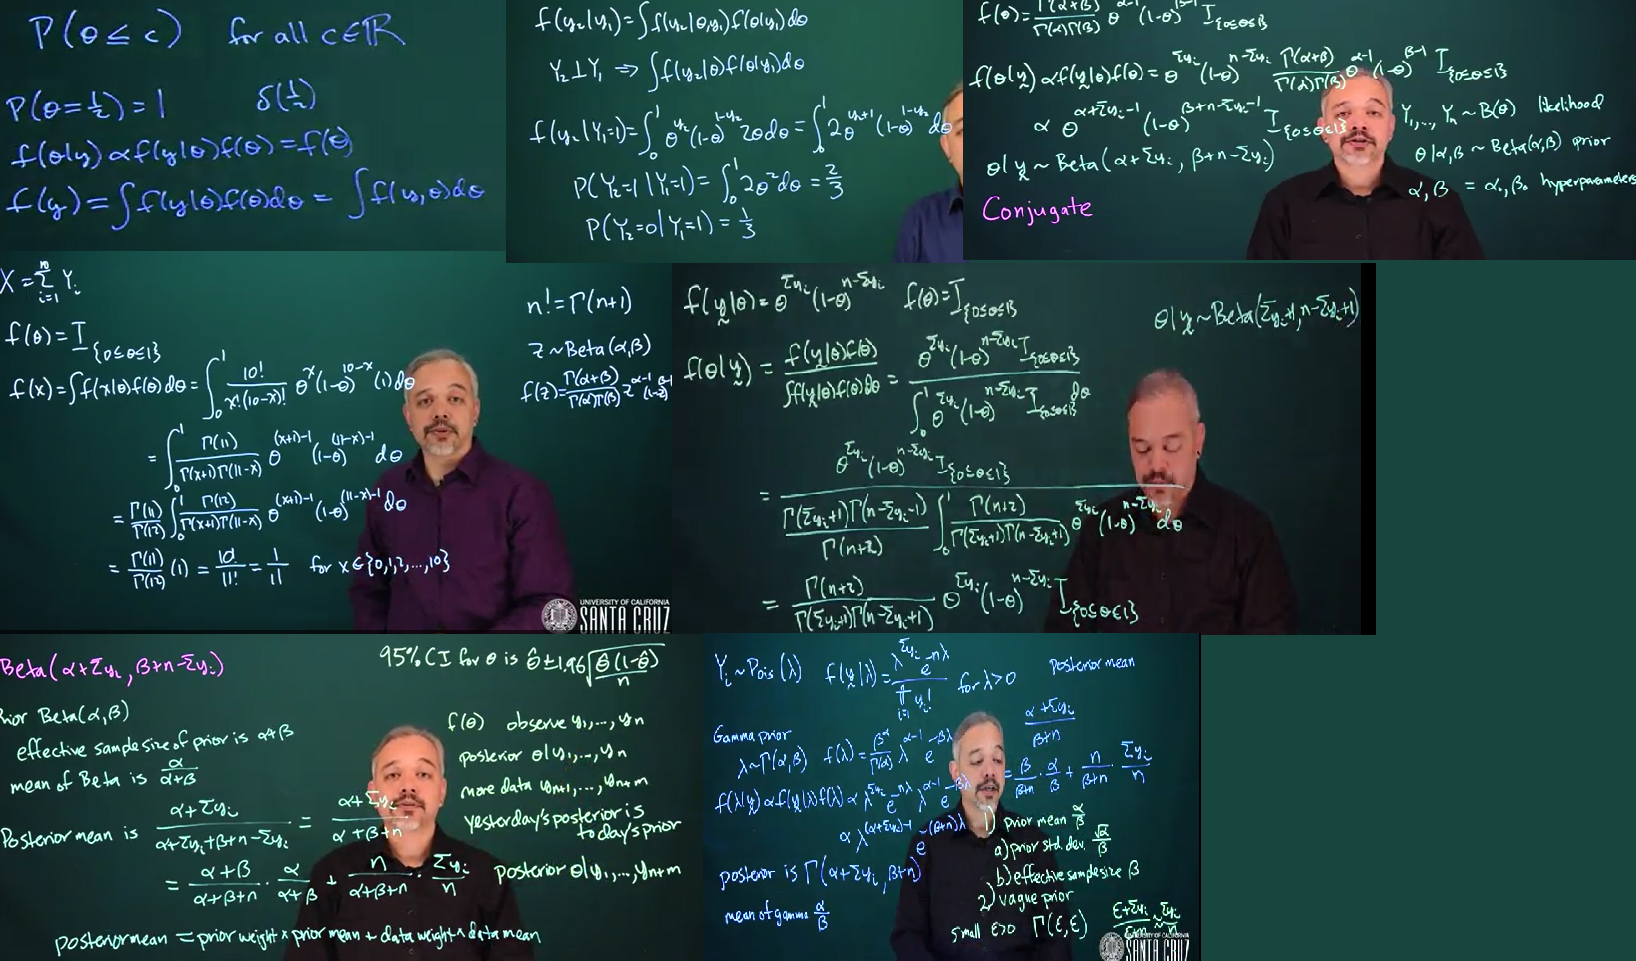 P(θ ≤ c) for all c∈ℝ
P(θ=½)=1 δ(½)
f(θ|y) ∝ f(y|θ)f(θ) = f(θ)
f(y) = ∫f(y|θ)f(θ)dθ = ∫f(y,θ)dθ
f(y₂|y₁) = ∫f(y₂|θ,y₁)f(θ|y₁)dθ
Y₂⊥Y₁ ⇒ ∫f(y₂|θ)f(θ|y₁)dθ
f(y₂|Y₁=1) = ∫₀¹ θ^y₂ (1-θ)^(1-y₂) 2θdθ = ∫₀¹ 2θ^(y₂+1) (1-θ)^(1-y₂) dθ
P(Y₂=1|Y₁=1) = ∫₀¹ 2θ²dθ = 2/3
P(Y₂=0|Y₁=1) = 1/3
f(θ) = Γ(α+β)/Γ(α)Γ(β) θ^(α-1) (1-θ)^(β-1) I_{0≤θ≤1}
f(θ|y) ∝ f(y|θ)f(θ) = θ^Σyᵢ (1-θ)^(n-Σyᵢ) Γ(α+β)/Γ(α)Γ(β) θ^(α-1) (1-θ)^(β-1) I_{0≤θ≤1}
∝ θ^(α+Σyᵢ-1) (1-θ)^(β+n-Σyᵢ-1) I_{0≤θ≤1}
θ|y ~ Beta(α+Σyᵢ, β+n-Σyᵢ)
Conjugate
Y₁,…,Yₙ ~ B(θ) likelihood
θ|α,β ~ Beta(α,β) prior
α,β = α₀,β₀ hyperparameters
X = Σᵢ₌₁¹⁰ Yᵢ
f(θ) = I_{0≤θ≤1}
f(x) = ∫f(x|θ)f(θ)dθ = ∫₀¹ 10!/x!(10-x)! θ^x (1-θ)^(10-x) (1)dθ
= ∫₀¹ Γ(11)/Γ(x+1)Γ(11-x) θ^((x+1)-1) (1-θ)^((11-x)-1) dθ
= Γ(11)/Γ(12) ∫₀¹ Γ(12)/Γ(x+1)Γ(11-x) θ^((x+1)-1) (1-θ)^((11-x)-1) dθ
= Γ(11)/Γ(12) (1) = 10!/11! = 1/11 for x∈{0,1,2,…,10}
n! = Γ(n+1)
Z ~ Beta(α,β)
f(z) = Γ(α+β)/Γ(α)Γ(β) z^(α-1) (1-z)^(β-1)
UNIVERSITY OF CALIFORNIA
SANTA CRUZ
f(y|θ) = θ^Σyᵢ (1-θ)^(n-Σyᵢ) f(θ) = I_{0≤θ≤1}
θ|y ~ Beta(Σyᵢ+1, n-Σyᵢ+1)
f(θ|y) = f(y|θ)f(θ)/∫f(y|θ)f(θ)dθ = θ^Σyᵢ (1-θ)^(n-Σyᵢ) I_{0≤θ≤1} / ∫₀¹ θ^Σyᵢ (1-θ)^(n-Σyᵢ) I_{0≤θ≤1} dθ
= θ^Σyᵢ (1-θ)^(n-Σyᵢ) I_{0≤θ≤1} / Γ(Σyᵢ+1)Γ(n-Σyᵢ-1)/Γ(n+2) ∫₀¹ Γ(n+2)/Γ(Σyᵢ+1)Γ(n-Σyᵢ+1) θ^Σyᵢ (1-θ)^(n-Σyᵢ) dθ
= Γ(n+2)/Γ(Σyᵢ+1)Γ(n-Σyᵢ+1) θ^Σyᵢ (1-θ)^(n-Σyᵢ) I_{0≤θ≤1}
Beta(α+Σyᵢ, β+n-Σyᵢ)
rior Beta(α,β)
effective sample size of prior is α+β
mean of Beta is α/α+β
Posterior mean is α+Σyᵢ/α+Σyᵢ+β+n-Σyᵢ = α+Σyᵢ/α+β+n
= α+β/α+β+n · α/α+β + n/α+β+n · Σyᵢ/n
posterior mean = prior weight × prior mean + data weight × data mean
95% CI for θ is θ̂ ± 1.96√θ̂(1-θ̂)/n
f(θ) observe y₁,…,yₙ
posterior θ|y₁,…,yₙ
more data yₙ₊₁,…,yₙ₊ₘ
yesterday's posterior is
today's prior
posterior θ|y₁,…,yₙ₊ₘ
Yᵢ ~ Pois(λ) f(y|λ) = λ^Σyᵢ e^(-nλ)/∏ᵢ₌₁ⁿ yᵢ! for λ>0
Gamma prior
λ ~ Γ(α,β) f(λ) = β^α/Γ(α) λ^(α-1) e^(-βλ)
f(λ|y) ∝ f(y|λ)f(λ) ∝ λ^Σyᵢ e^(-nλ) λ^(α-1) e^(-βλ)
∝ λ^((α+Σyᵢ)-1) e^(-(β+n)λ)
posterior is Γ(α+Σyᵢ, β+n)
mean of gamma α/β
posterior mean
α+Σyᵢ/β+n
= β/β+n · α/β + n/β+n · Σyᵢ/n
1) prior mean α/β
a) prior std. dev. √α/β
b) effective sample size β
2) vague prior
small ε>0 Γ(ε,ε) ε+Σyᵢ/ε+n ≈ Σyᵢ/n
UNIVERSITY OF CALIFORNIA
SANTA CRUZ